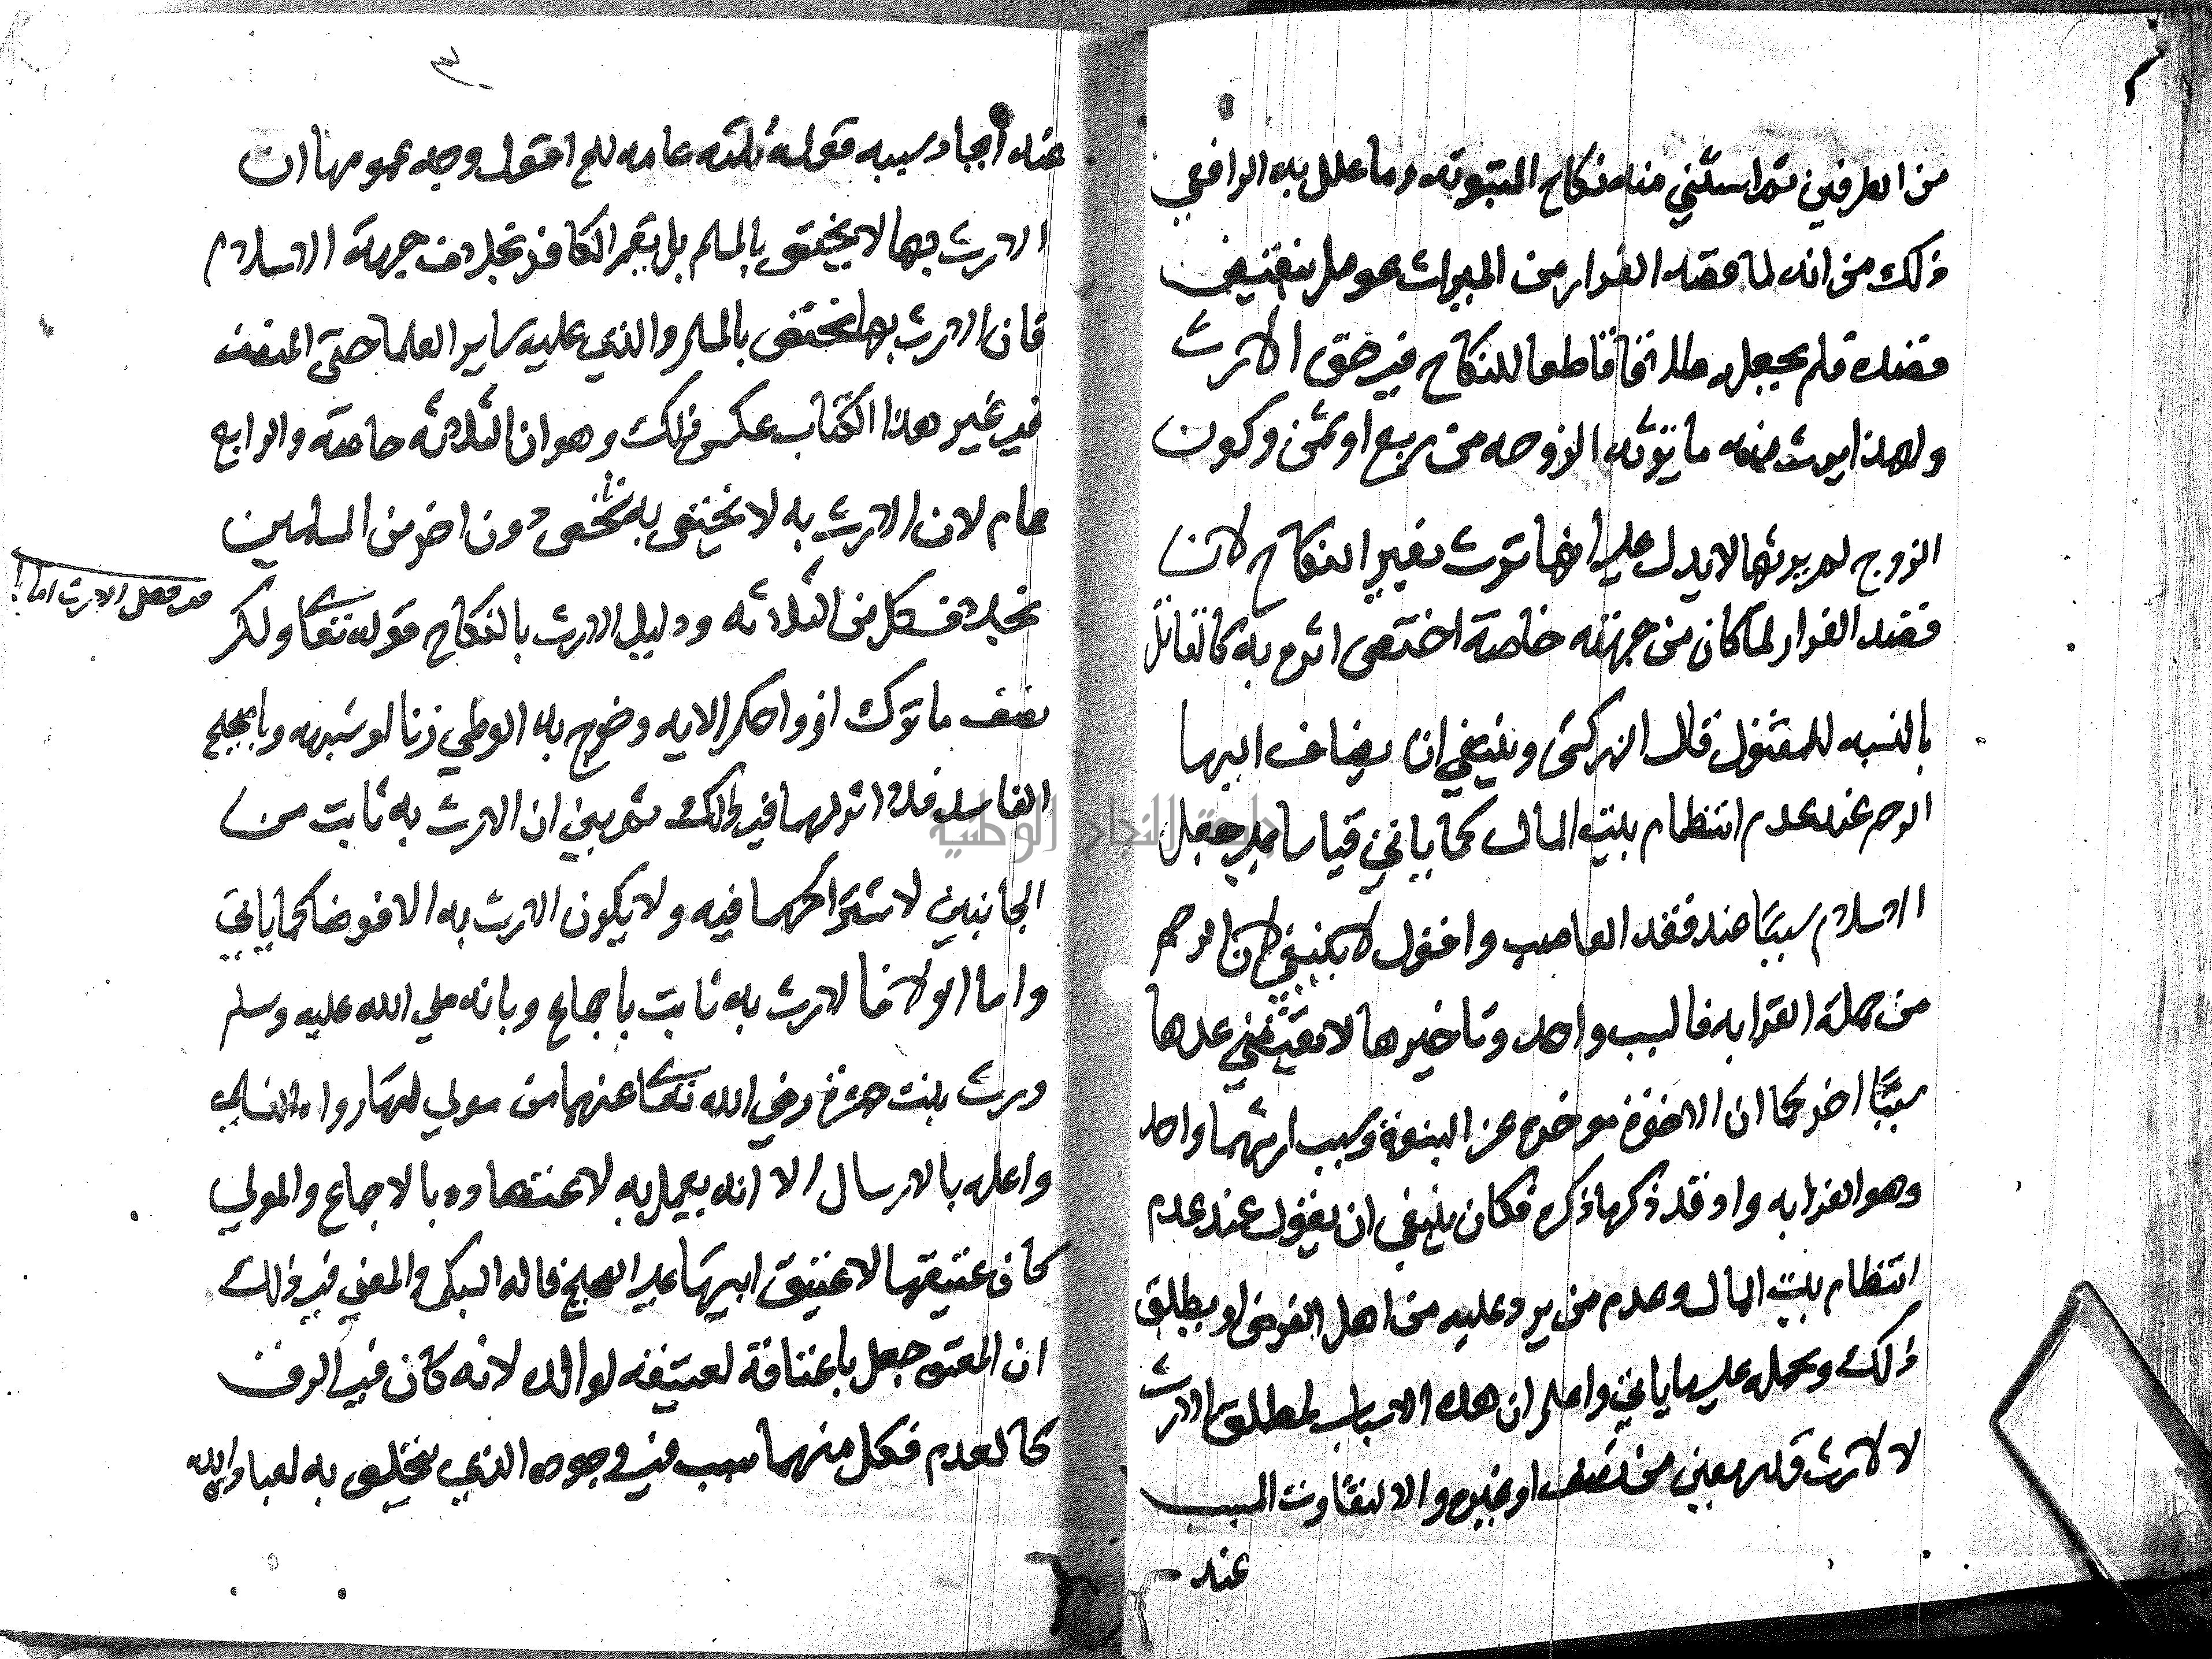 من الطرفين ثم استثني منه نكاح المبتوته وما علل به الرافعي
ذلك من انه لما قصد الفرار من الميراث عومل بنقيض
قصده فلم يجعل طلاقا قاطعا للنكاح في حق الارث
ولهذا يرث منه ما ترثه الزوجه من ربع او ثمن وكون
الزوج لم يرثها لا يدل علي انها ترث بغير النكاح لان
قصد الفرار لما كان من جهته خاصة اختص اثره به كالقاتل
بالنسبه للمقتول قال الزركشى وينبغي ان يضاف اليها
الرحم عند عدم انتظام بيت المال كما ياتي قياسا علي جعل
الاسلام سببا عند فقد العاصب واقول لا ينبغي لان الرحم
من جملة القرابه فالسبب واحد وتاخيرها لا يقتضي عدها
سببا اخر كما ان الاخوة موخره عن البنوة وسبب ارثهما واحد
وهو القرابه واذ قد ذكرها ذكره فكان ينبغي ان يقول عند عدم
انتظام بيت المال وعدم من يرد عليه من اهل الفرض او يطلق
ذلك ويحمل علي ما ياتي واعلم ان هذه الاسباب لمطلق الارث
لا لارث قدر معين من نصف او غيره والا لتفاوت السبب
عند
٣
عند اتحاد سببه قوله ثلثه عامه للخ اقول وجه عمومها ان
الارث بها لا يختص بالمسلم بل يعم الكافر بخلاف جهة الاسلام
فان الارث بها مختص بالمسلم والذي عليه ساير العلما حتى المصنف
في غير هذا الكتاب عكس ذلك وهو ان الثلاثه خاصة والرابع
عام لان الارث به لا يختص به شخص دون اخر من المسلمين
بخلاف كل من الثلاثه ودليل الارث بالنكاح قوله تعا ولكم
نصف ما ترك ازواجكم الايه وخرج به الوطي زنا او شبهه
الفاسد فلا اثر لهما في ذلك ثم بين ان الارث به ثابت من
الجانبين لاشتراكهما فيه ولا يكون الارث به الا فرضا كما ياتي
واما الولا فالارث به ثابت باجماع وبانه صلي الله عليه وسلم
ورث بنت حمزة رضي الله تعا عنهما من مولي لها رواه النساي
واعله بالارسال الا انه يعمل به لاعتضاده بالاجماع والمولي
كان عتيقها لا عتيق ابيها علي الصحيح قاله السبكي والمعني في ذلك
ان المعتق جعل باعتاقه لعتيقه كوالده لانه كان في الرق
كالعدم فكل منهما سبب في وجوده الذي يتخلص به لعبادة الله